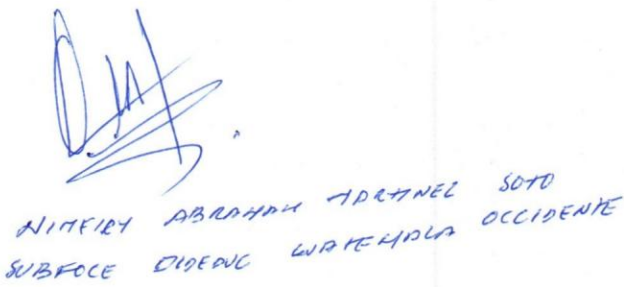 NIMEIRY ABRAHAM MARTINEZ SOTO
SUBFOCE DIDEDUC GUATEMALA OCCIDENTE